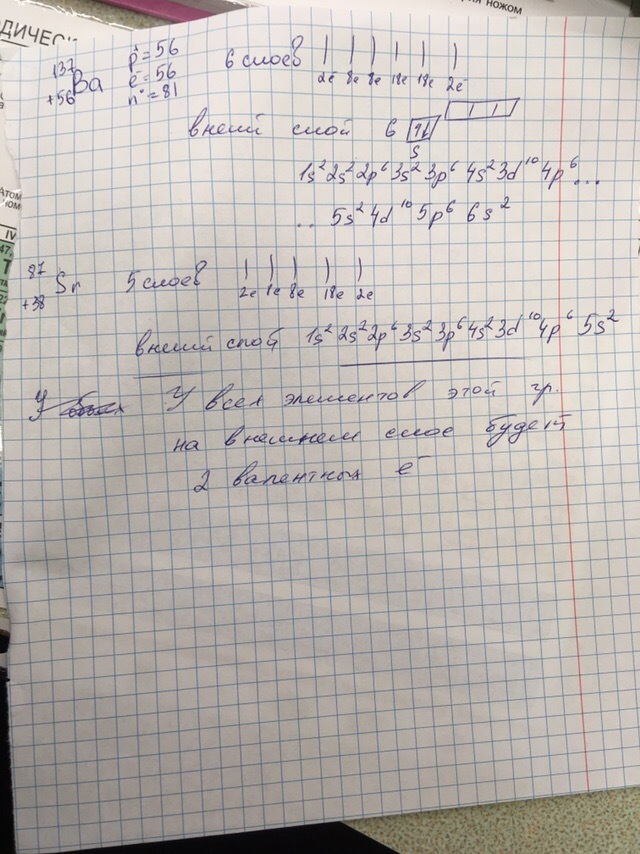 ДИЧЕСК
ножом
137
+56 Ba p⁺=56
e⁻=56
n°=81
6 слоев
2e 8e 8e 18e 18e 2e
внеш слой 6 ↑↓
S
1s² 2s² 2p⁶ 3s² 3p⁶ 4s² 3d¹⁰ 4p⁶ ...
.. 5s² 4d¹⁰ 5p⁶ 6s²
87
+38 Sr 5 слоев
2e 8e 8e 18e 2e
внеший слой 1s² 2s² 2p⁶ 3s² 3p⁶ 4s² 3d¹⁰ 4p⁶ 5s²
У У всех элементов этой гр.
на внешнем слое будет
2 валентных e⁻
Атом
ном
IV
47,
Т